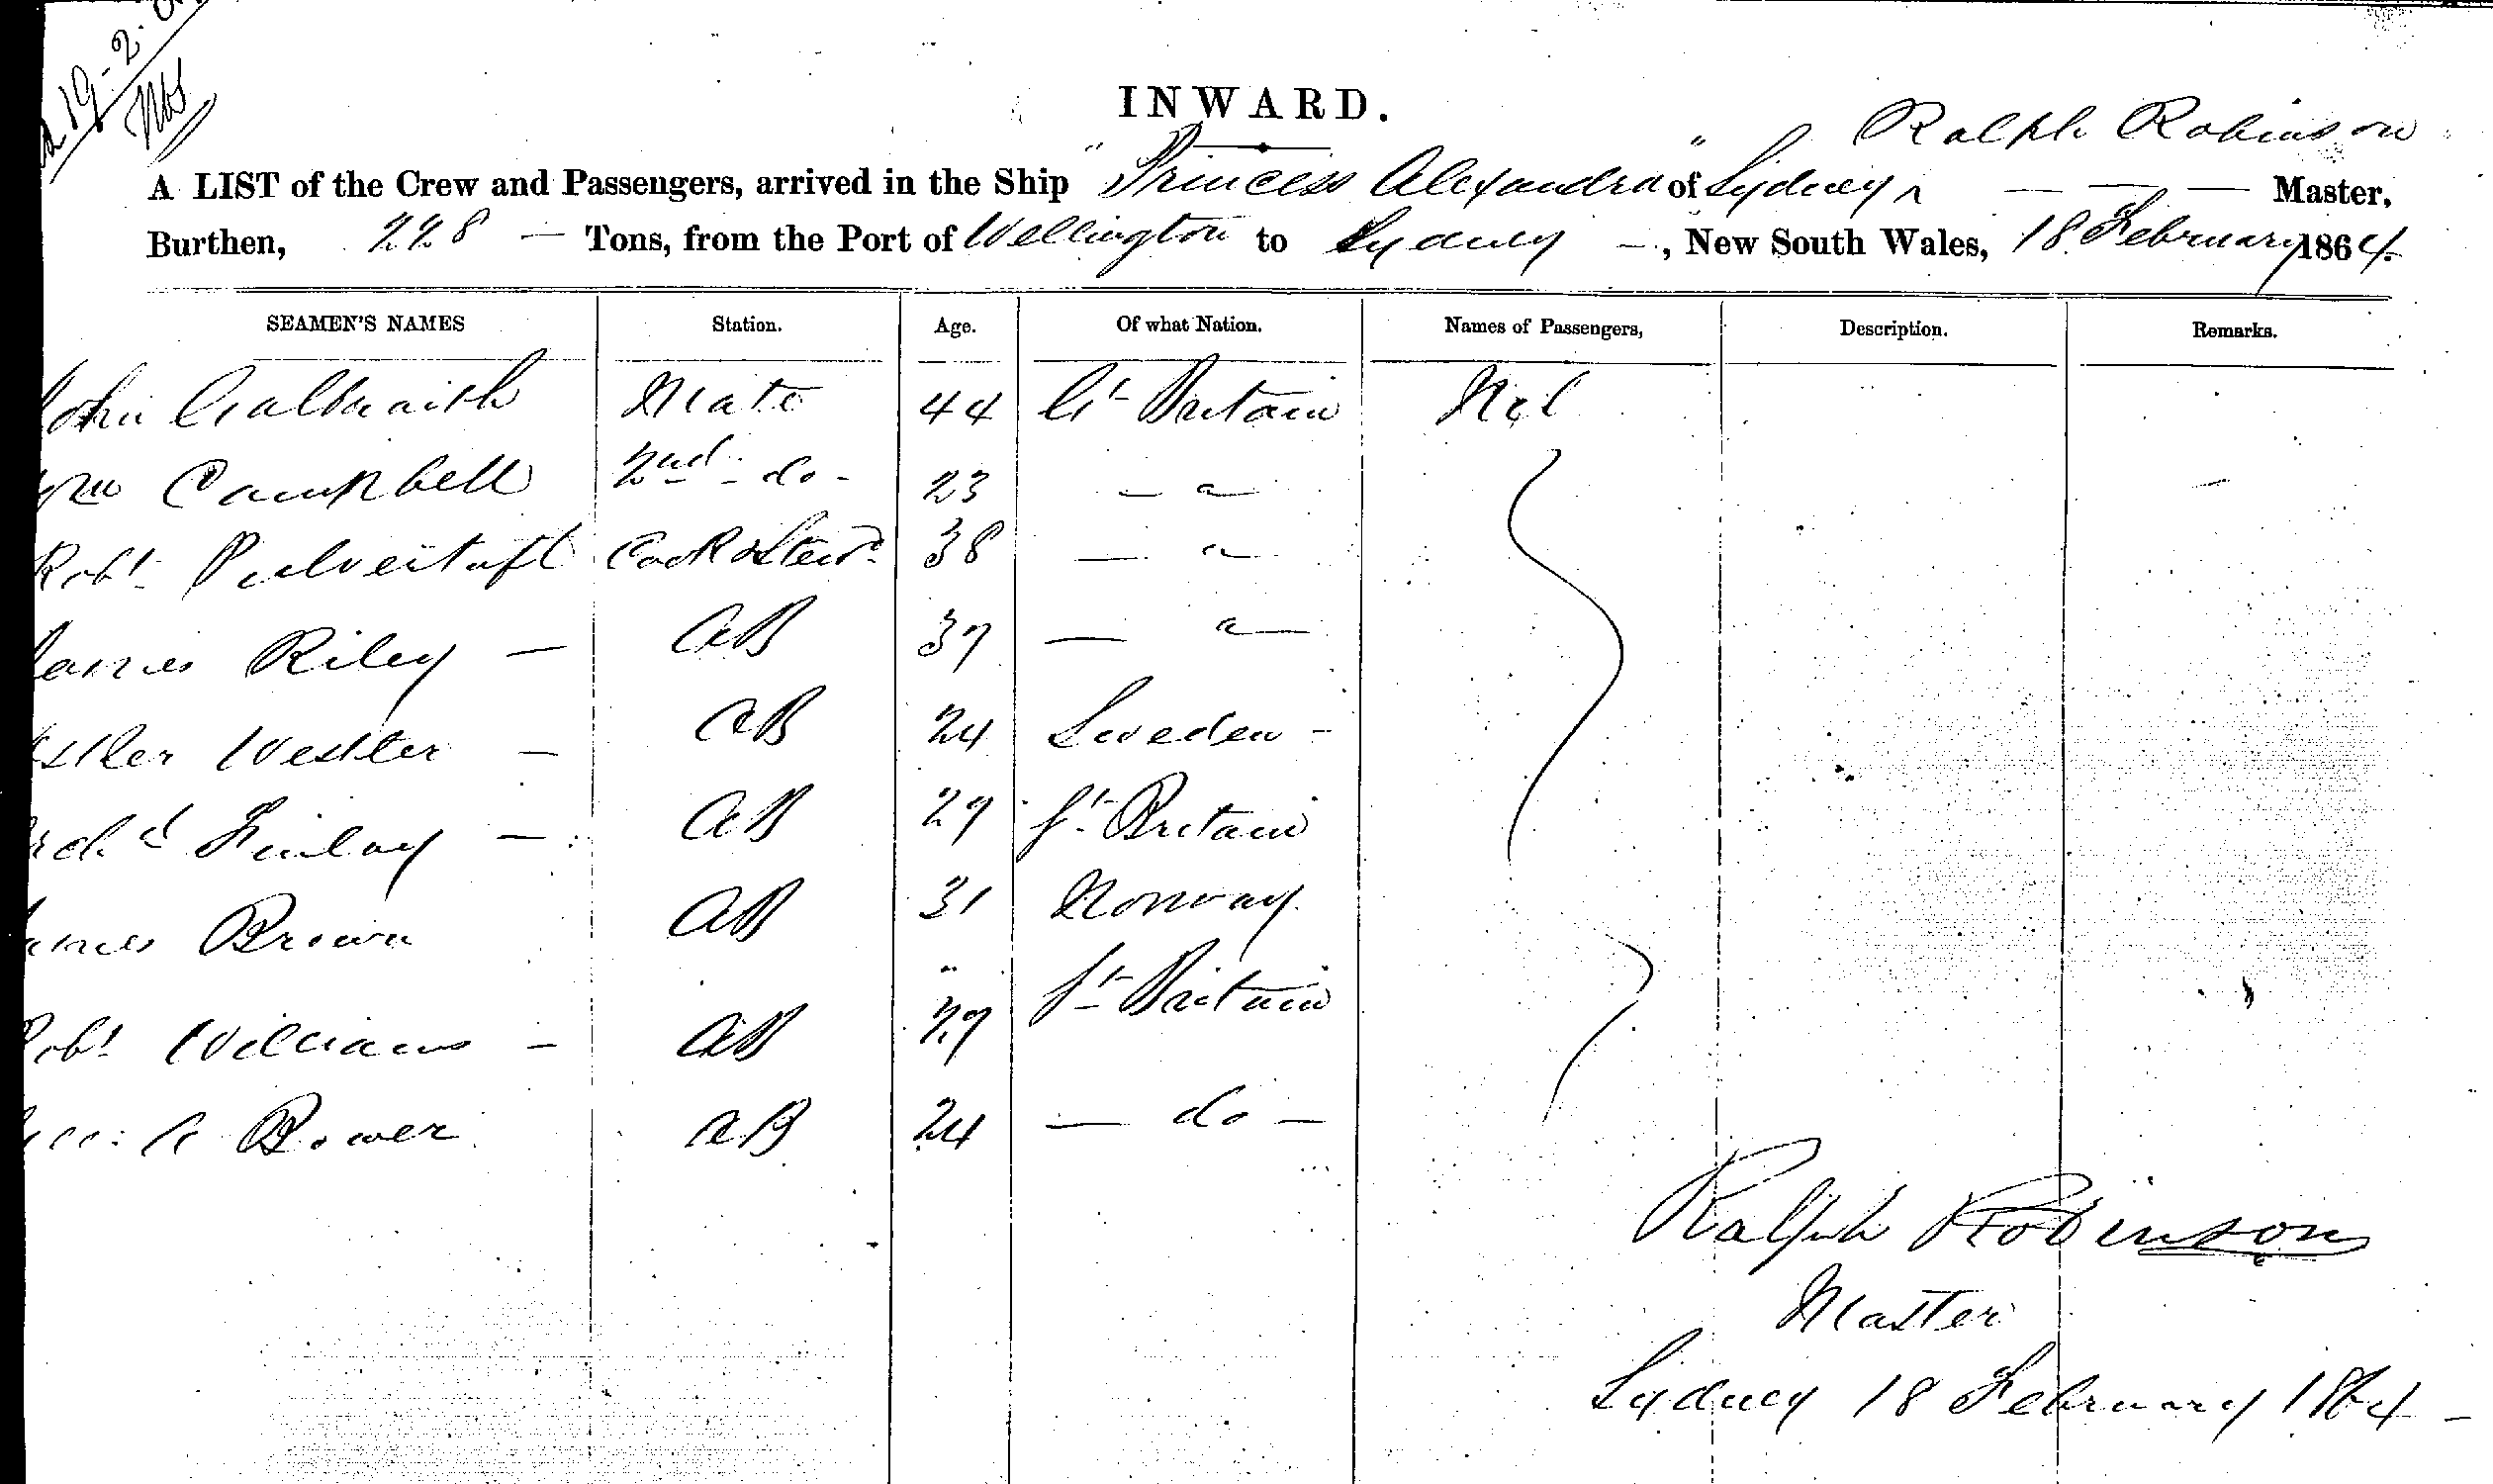 19-2-
INWARD.
Ralph Robinson
A LIST of the Crew and Passengers, arrived in the Ship "Princess Alexandra" of Sydney, — — — Master,
Burthen, 228 — Tons, from the Port of Wellington to Sydney —, New South Wales, 18 February 1864.
SEAMEN'S NAMES Station. Age. Of what Nation. Names of Passengers, Description. Remarks.
John Galbraith Mate 44 Gt Britain Nil
Wm Campbell 2nd do - 23 — " —
Robt Pulvertaft Cook & Stewd 38 — " —
James Riley — AB 37 — " —
Westler — AB 24 Sweden -
Archd Finlay — AB 29 Gt Britain
James Brown AB 31 Norway.
Robt Williams — AB 29 Gt Britain
Bower AB 24 — do —
Ralph Robinson
Master
Sydney 18 February 1864 -